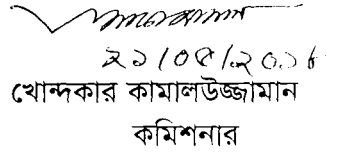 ২১/০৫/২০১৮
খোন্দকার কামালউজ্জামান
কমিশনার